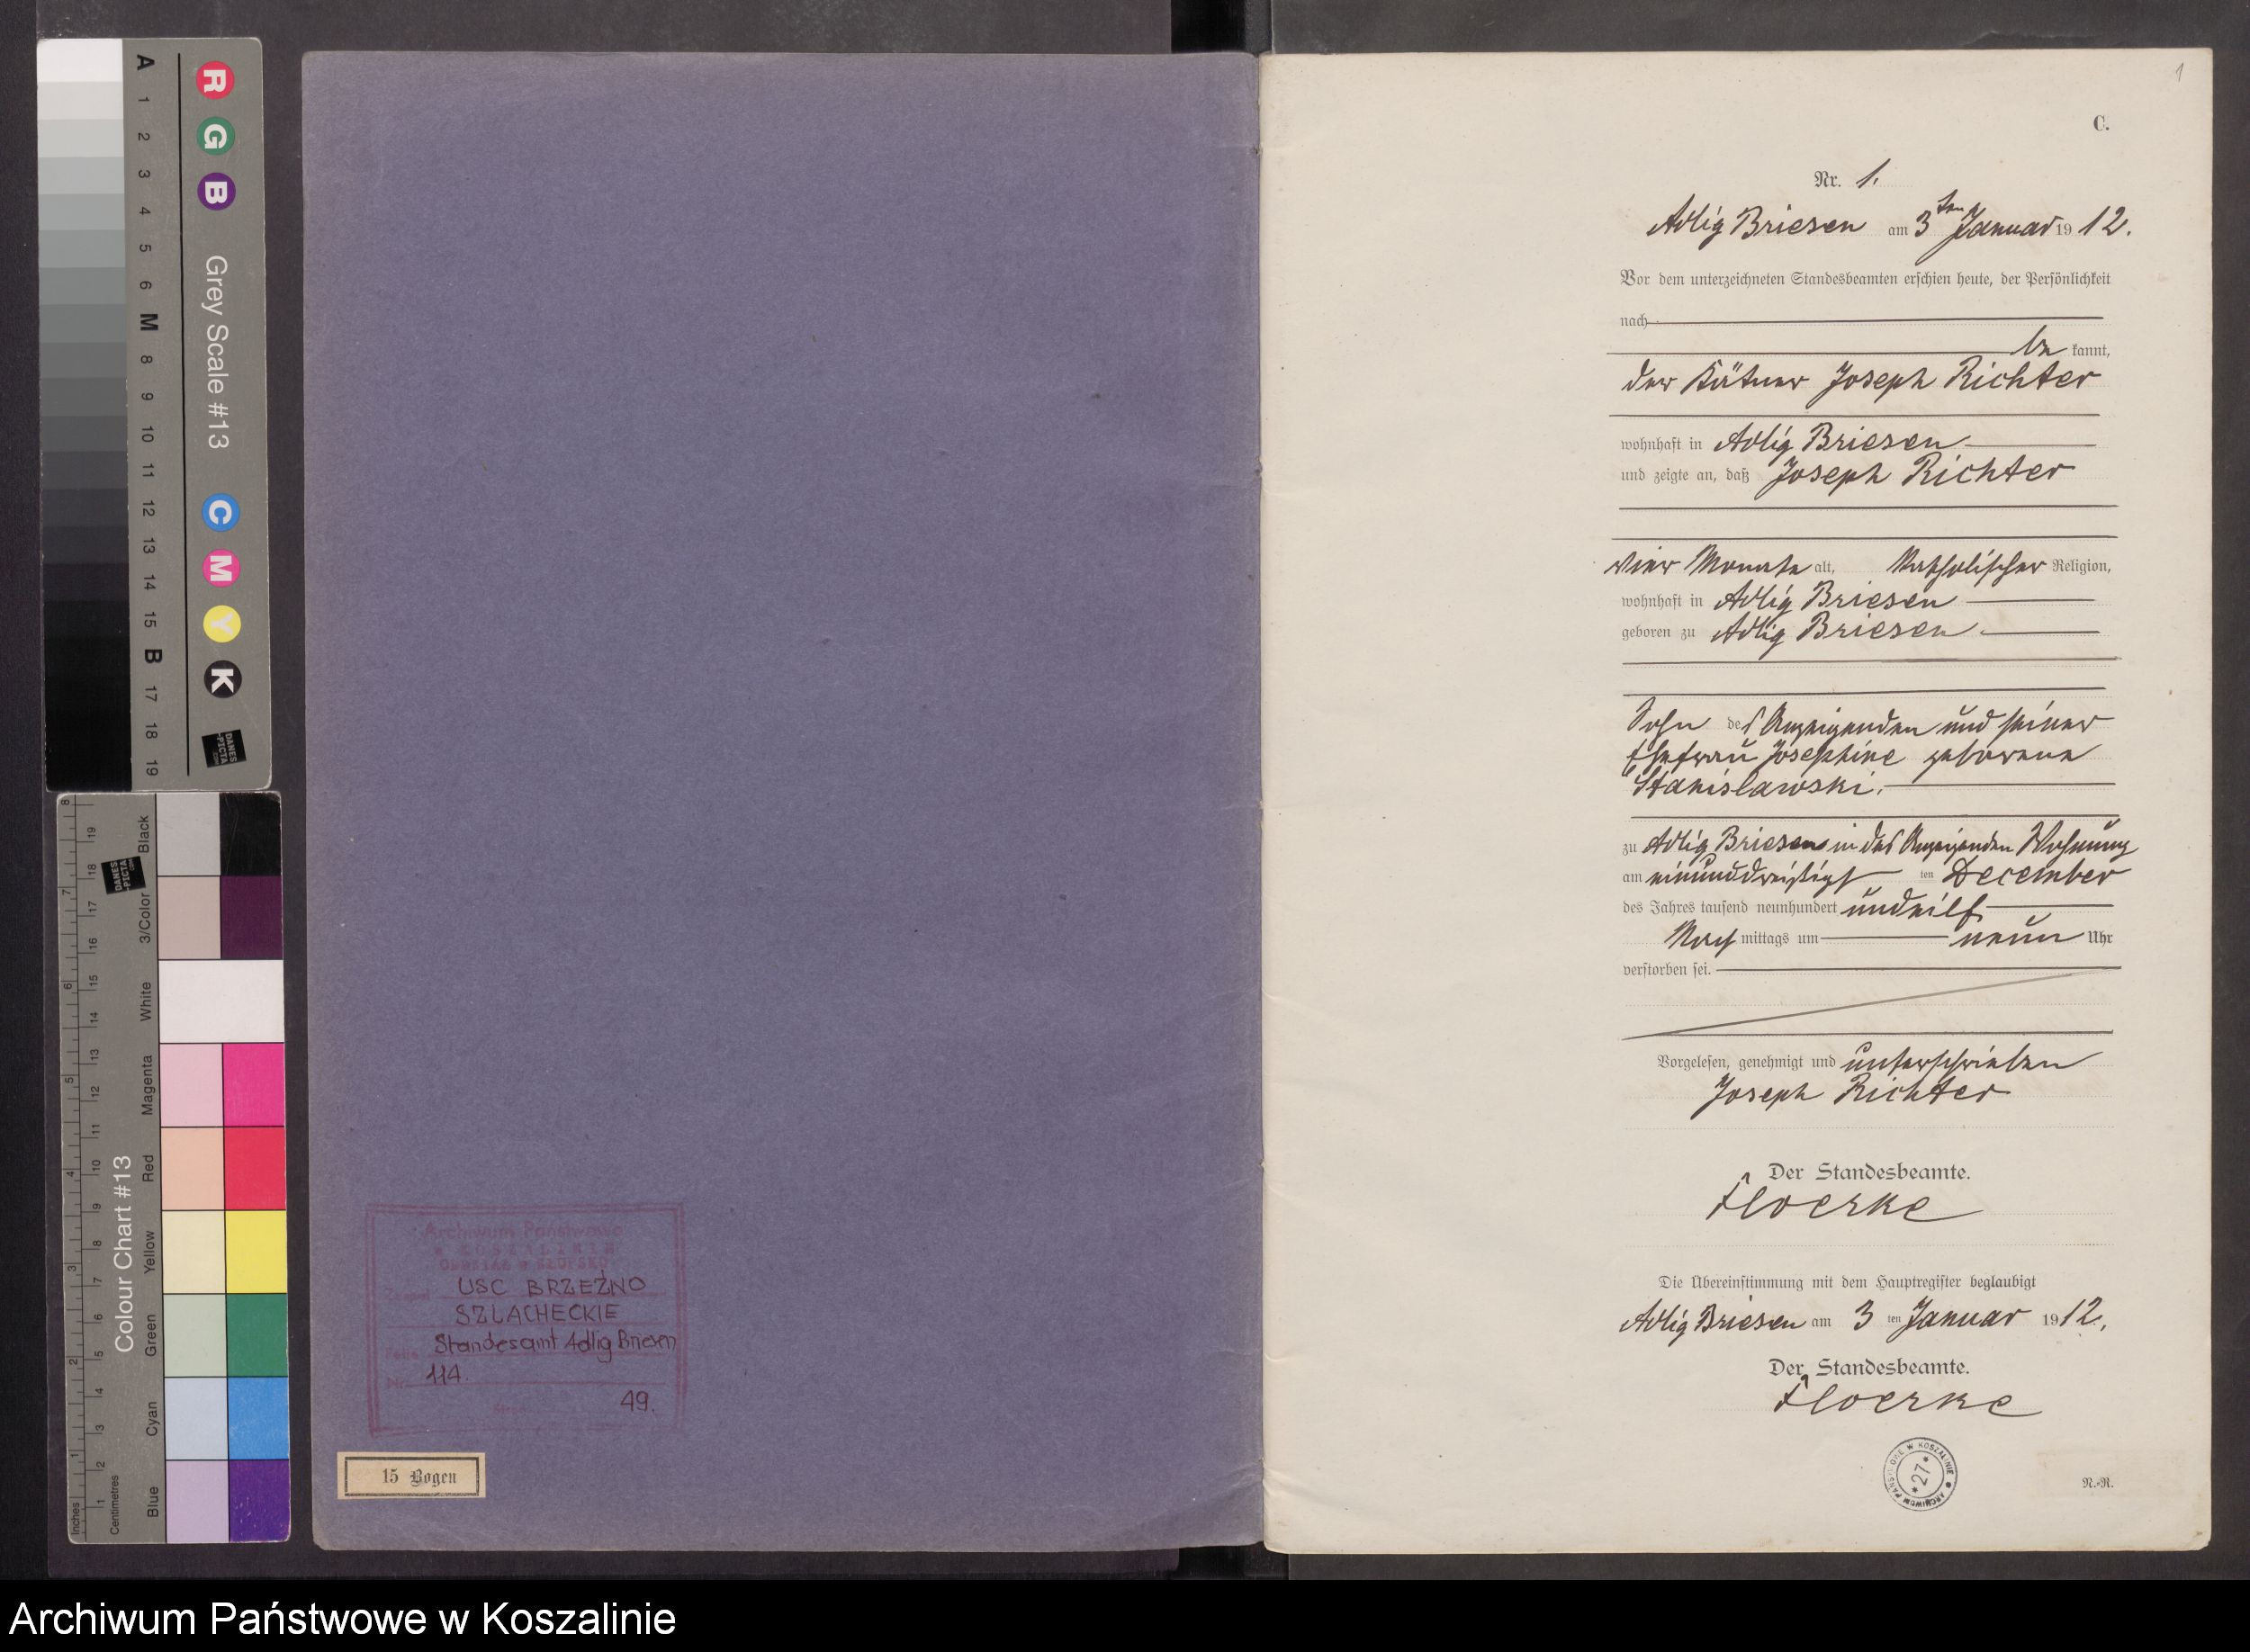 A 1 2 3 4 5 6 M 8 9 10 11 12 13 14 15 B 17 18 19
R G B
Grey Scale #13
C M Y K
DANES
PICTA
.COM
Colour Chart #13
Black
3/Color
White
Magenta
Red
Yellow
Green
Cyan
Blue
Inches
1 2 3 4 5 6 7 8
Centimetres
1 2 3 4 5 6 7 8 9 10 11 12 13 14 15 16 17 18 19
DANES
PICTA
.COM
Archiwum Państwowe
w KOSZALINIE
Oddział w SŁUPSKU
Zespół USC BRZEŹNO
SZLACHECKIE
Standesamt Adlig Briesen
Nr 114.
49.
15 Bogen
1
C.
Nr. 1.
Adlig Briesen am 3ten Januar 1912.
Vor dem unterzeichneten Standesbeamten erschien heute, der Persönlichkeit
nach
be kannt,
der Kätner Joseph Richter
wohnhaft in Adlig Briesen
und zeigte an, daß Joseph Richter
vier Monate alt, katholischer Religion,
wohnhaft in Adlig Briesen
geboren zu Adlig Briesen
Sohn des Anzeigenden und seiner
Ehefrau Josephine geborene
Stanislawski.
zu Adlig Briesen in des Anzeigenden Wohnung
am einunddreißigst ten December
des Jahres tausend neunhundert undeilf
Nach mittags um neun Uhr
verstorben sei.
Vorgelesen, genehmigt und unterschrieben
Joseph Richter
Der Standesbeamte.
Floerke
Die Übereinstimmung mit dem Hauptregister beglaubigt
Adlig Briesen am 3 ten Januar 1912.
Der Standesbeamte.
Floerke
ARCHIWUM PAŃSTWOWE W KOSZALINIE
*27*
R.-R.
Archiwum Państwowe w Koszalinie